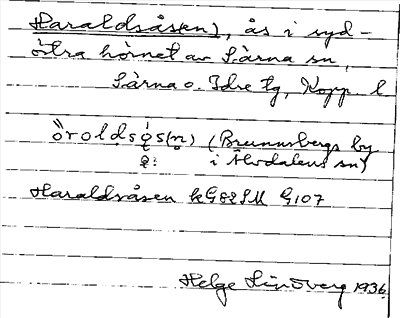 Haraldsåsen), ås i syd-
östra hörnet av Särna sn,
Särna o. Idre tg, Kopp. l
ö̀roldsǫ́s(n̥) (Brunnsbergs by
ǫ: i Älvdalens sn)
Haraldsåsen kG82SM G107
Helge Lindberg 1936